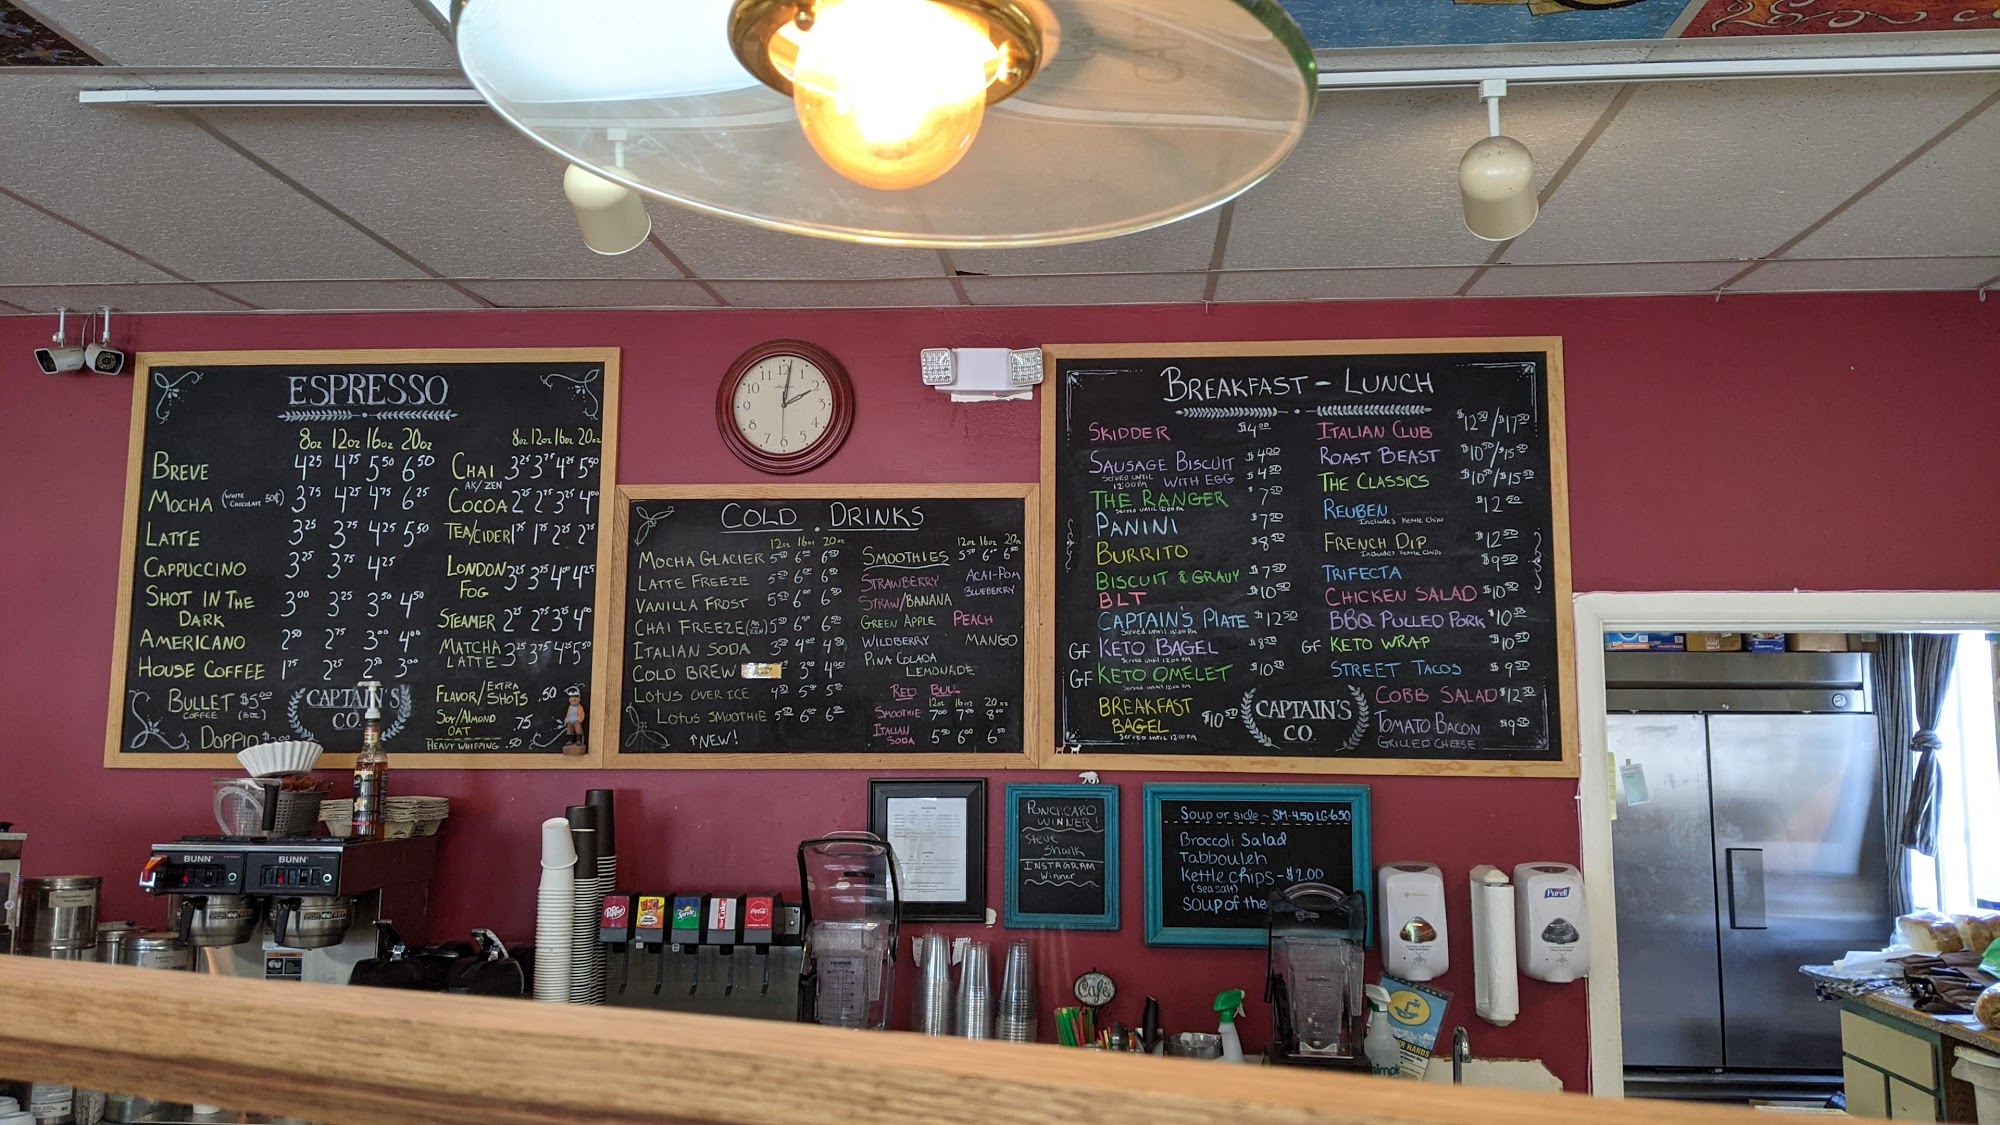 ESPRESSO
8oz 12oz 16oz 20oz
BREVE 4.25 4.75 5.50 6.50
MOCHA (WHITE CHOCOLATE 50¢) 3.75 4.25 4.75 6.25
LATTE 3.25 3.75 4.25 5.50
CAPPUCCINO 3.25 3.75 4.25
SHOT IN THE DARK 3.00 3.25 3.50 4.50
AMERICANO 2.50 2.75 3.00 4.00
HOUSE COFFEE 1.75 2.25 2.50 3.00
BULLET $5.00
COFFEE (16oz)
DOPPIO
8oz 12oz 16oz 20oz
CHAI 3.25 3.75 4.25 5.50
AK/ZEN
COCOA 2.25 2.75 3.25 4.00
TEA/CIDER 1.75 1.75 2.25 2.75
LONDON FOG 3.25 3.75 4.00 4.25
STEAMER 2.25 2.75 3.25 4.00
MATCHA LATTE 3.25 3.75 4.25 5.50
FLAVOR/EXTRA SHOTS .50
SOY/ALMOND OAT .75
HEAVY WHIPPING .50
CAPTAIN'S
CO.
COLD DRINKS
12oz 16oz 20oz
MOCHA GLACIER 5.50 6.00 6.50
LATTE FREEZE 5.50 6.00 6.50
VANILLA FROST 5.50 6.00 6.50
CHAI FREEZE (AK/ZEN) 5.50 6.00 6.50
ITALIAN SODA 3.50 4.00 4.50
COLD BREW 3.00 4.00
LOTUS OVER ICE 4.50 5.00 5.50
LOTUS SMOOTHIE 5.50 6.00 6.50
↑NEW!
12oz 16oz 20oz
SMOOTHIES 5.50 6.00 6.50
STRAWBERRY ACAI-POM
BLUEBERRY
STRAW/BANANA
GREEN APPLE PEACH
WILDBERRY MANGO
PINA COLADA
LEMONADE
RED BULL
12oz 16oz 20oz
SMOOTHIE 7.00 7.50 8.00
ITALIAN SODA 5.50 6.00 6.50
BREAKFAST - LUNCH
SKIDDER $4.00
SAUSAGE BISCUIT $4.00
SERVED UNTIL 12:00PM WITH EGG $4.50
THE RANGER $7.50
SERVED UNTIL 12:00PM
PANINI $7.50
BURRITO $8.50
BISCUIT & GRAVY $7.50
BLT $10.50
CAPTAIN'S PLATE $12.50
Served until 12:00 PM
GF KETO BAGEL $8.50
Served until 12:00 PM
GF KETO OMELET $10.50
Served until 12:00 PM
BREAKFAST BAGEL $10.50
SERVED UNTIL 12:00PM
ITALIAN CLUB $12.50/$17.50
ROAST BEAST $10.50/$15.50
THE CLASSICS $10.50/$15.50
REUBEN $12.50
Includes Kettle Chips
FRENCH DIP $12.50
Includes Kettle Chips
TRIFECTA $9.50
CHICKEN SALAD $10.50
BBQ PULLED PORK $10.50
GF KETO WRAP $10.50
STREET TACOS $9.50
COBB SALAD $12.50
TOMATO BACON $9.50
GRILLED CHEESE
CAPTAIN'S
CO.
PUNCHCARD
WINNER!
Steve
Shalk
INSTAGRAM
Winner
Soup or side ~ SM-4.50 LG-6.50
Broccoli Salad
Tabbouleh
Kettle chips - $2.00
(sea salt)
Soup of the
BUNN
BUNN
Dr Pepper
Sprite
Coke
Coca-Cola
Café
Purell
simple